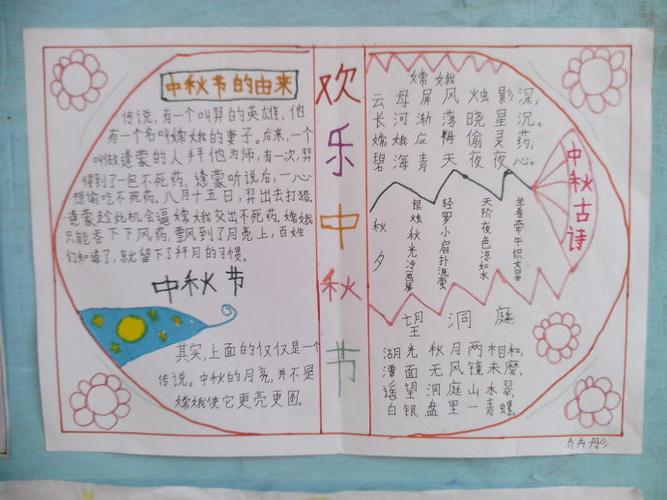 中秋节的由来
传说,有一个叫羿的英雄,他
有一个名叫嫦娥的妻子。后来,一个
叫做逢蒙的人拜他为师,有一次,羿
得到了一包不死药,逢蒙听说后,一心
想偷吃不死药,八月十五日,羿出去打猎,
逢蒙趁此机会逼嫦娥交出不死药,嫦娥
只能吞下下风药,飘风到了月亮上,百姓
们知道了,就留下了拜月的习惯。
中秋节
其实,上面的仅仅是一个
传说。中秋的月亮,并不是
嫦娥使它更亮更圆。
欢乐中秋节
嫦娥
云母屏风烛影深,
长河渐落晓星沉。
嫦娥应悔偷灵药,
碧海青天夜夜心。
中秋古诗
秋夕
银烛秋光冷画屏
轻罗小扇扑流萤
天阶夜色凉如水
坐看牵牛织女星
望洞庭
湖光秋月两相和,
潭面无风镜未磨。
遥望洞庭山水翠,
白银盘里一青螺。